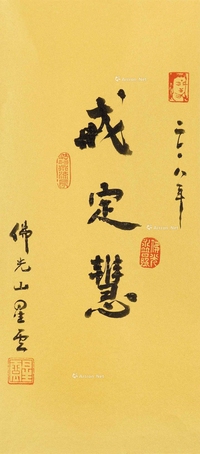 二〇一八年
戒定慧
佛光山星雲